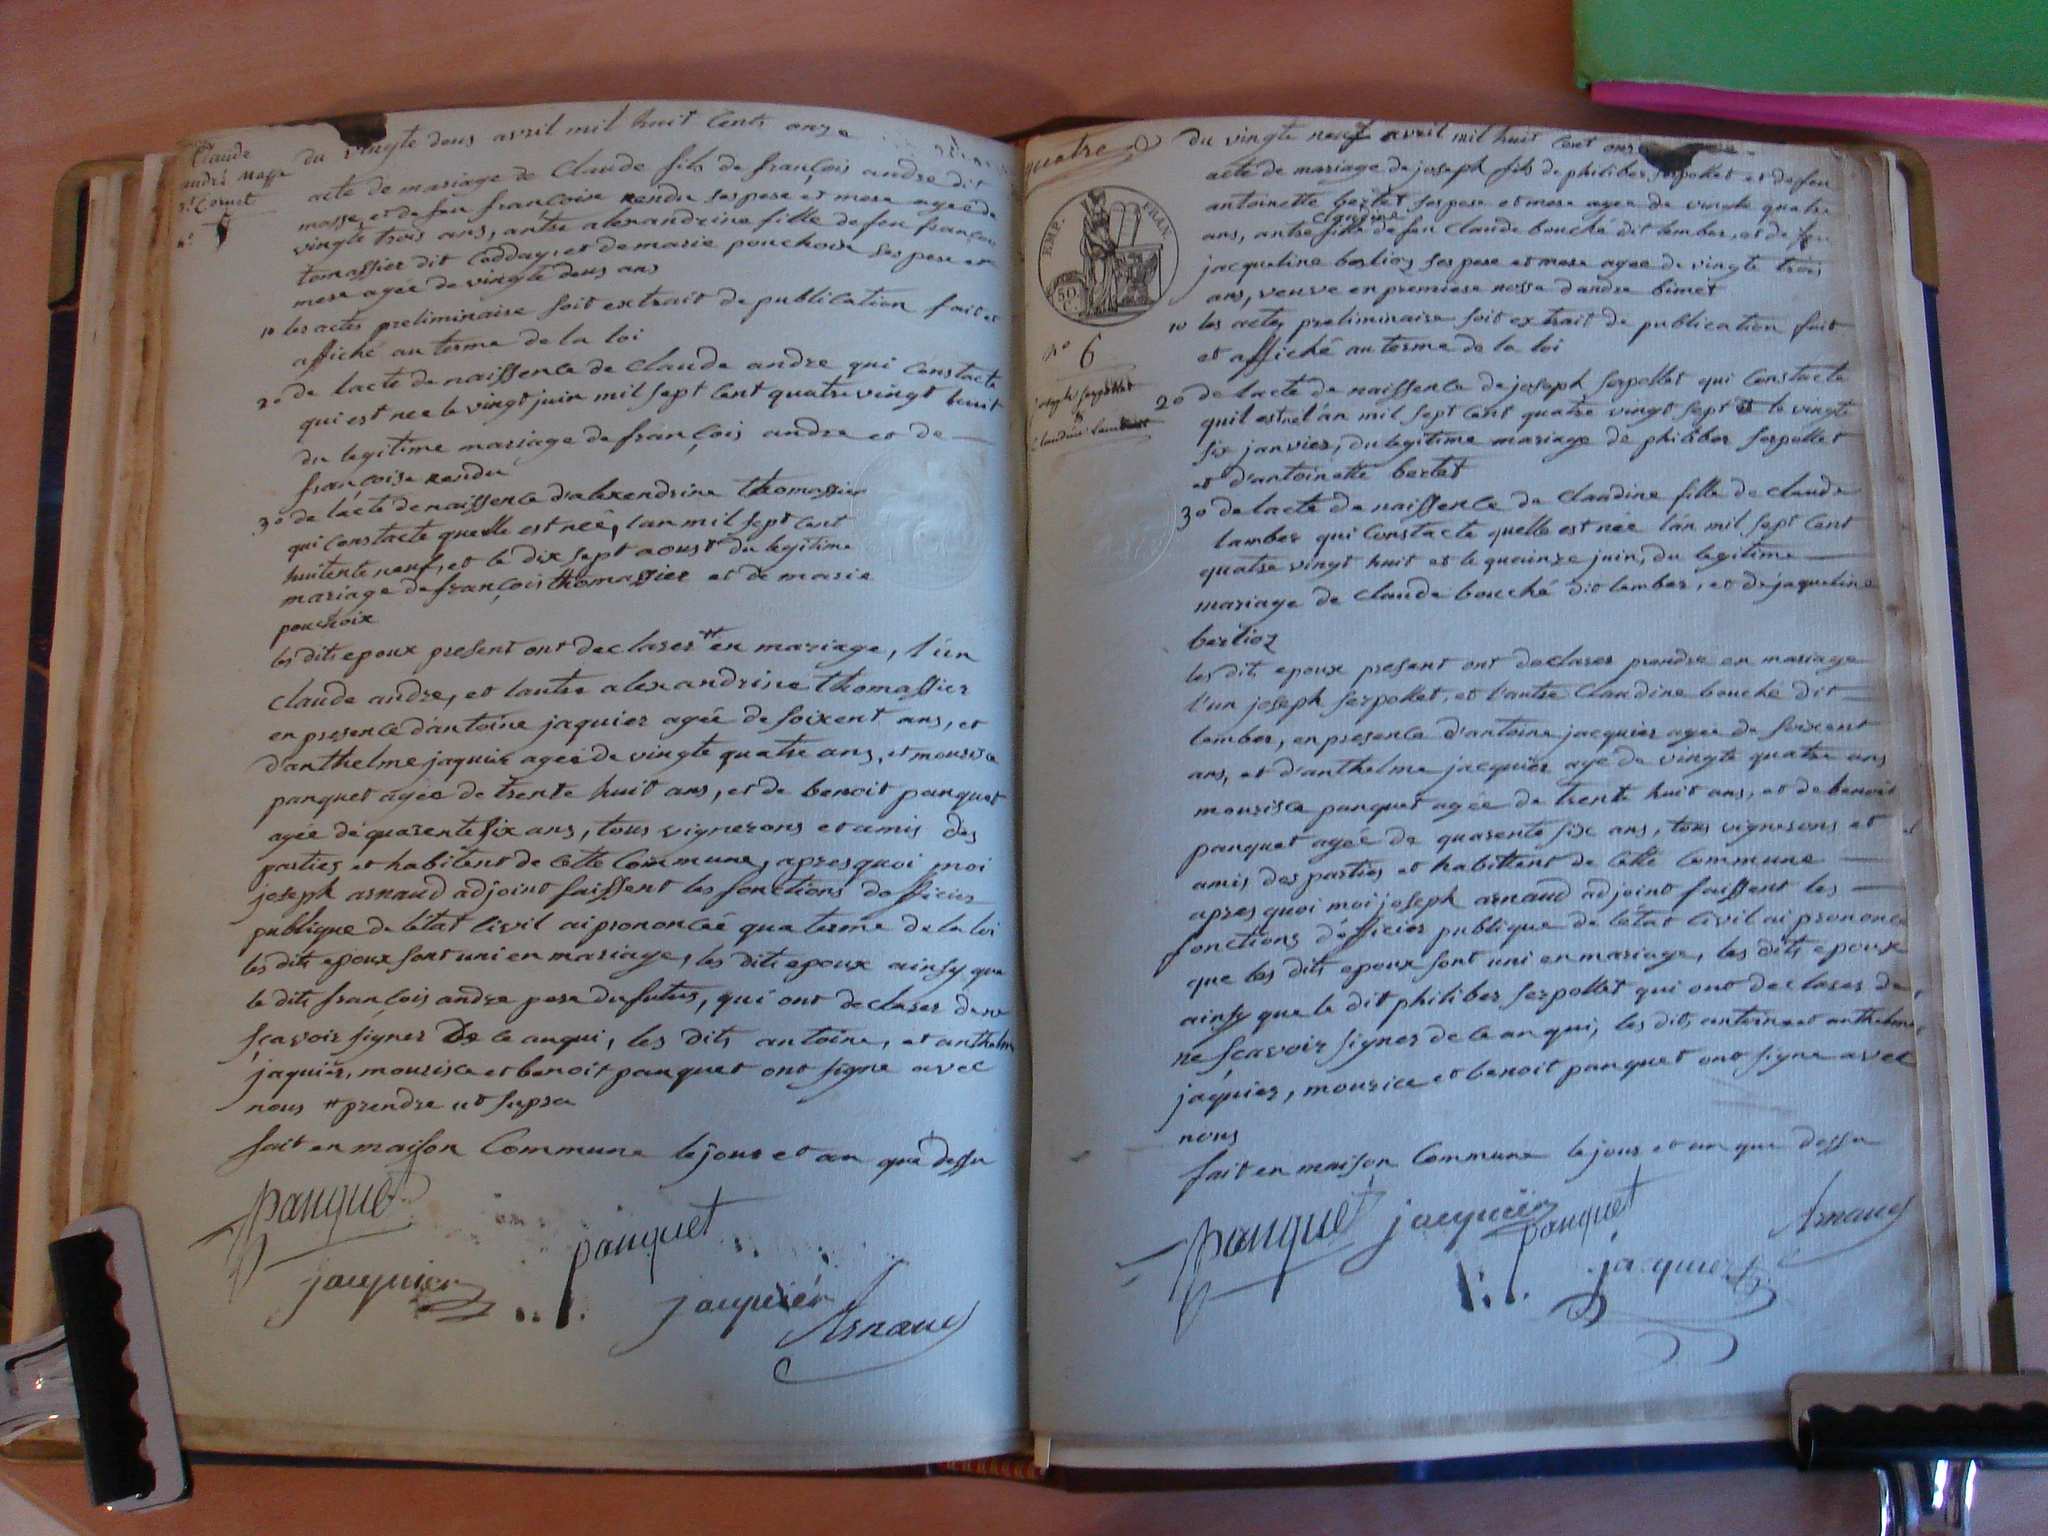 Claude
andré Masse
5
du vingte deus avril mil huit Cents onze
acte de mariage de Claude fils de françois andre dit
masse, et de feu françoise rendu ses pere et mere ageé de
vingte trois ans, antre alexandrine fille de feu françois
tomassier dit Codday, et de marie pouchoix ses pere et
mere ageé de vingte deus ans
1o les actes preliminaire soit extrait de publication fait et
affiché au terme de la loi
2o de lacte de naissence de Claude andre qui Constacte
qui est neé le vingt juin mil sept Cent quatre vingt huit
du legitime mariage de françois andre et de
françoise rendu
3o de lacte de naissence d'alexendrine thomassier
qui Constacte quelle est neé, l'an mil sept Cent
huitente neuf, et le dix sept aoust du legitime
mariage de françois thomassier et de marie
pouchoix
les dits epoux present ont declarer # en mariage, l'un
Claude andre, et lautre alexandrine thomassier
en presence d'antoine jaquier ageé de soixent ans, et
d'anthelme jaquier ageé de vingte quatre ans, et mourice
panquet ageé de trente huit ans, et de benoit panquet
ageé de quarente six ans, tous vignerons et amis des
parties et habitent de Cette Commune, apres quoi moi
joseph arnaud adjoint faissent les fonctions d'officier
publique de l'état Civil ai prononceé qua terme de la loi
les dits epoux sont uni en mariage, les dits epoux ainsy que
le dits françois andre pere du futur, qui ont declarer de ne
sçavoir signer de le anqui, les dits antoine, et anthelm
jaquier, mourice et benoit panquet ont signe avec
nous # prendre ut supra
fait en maison Commune le jour et an que dessu
panquet
panquet
jacquier
jacquier
Arnaud
quatre
EMP. FRAN.
50
C.
No 6
joseph serpollet
&
Claudine Lambert
du vingte neuf avril mil huit Cent onze
acte de mariage de joseph fils de philiber serpollet et de feu
antoinette bertet ses pere et mere agée de vingte quatre
Claudine
ans, antre fille de feu Claude bouché dit lamber, et de feu
jacqueline berlioz ses pere et mere ageé de vingte trois
ans, veuve en premiere nosse d'andre bimet
1o les actes preliminaire soit extrait de publication fait
et affiché au terme de la loi
2o de lacte de naissence de joseph serpollet qui Constacte
quil est né l'an mil sept Cent quatre vingt sept et le vingte
six janvier, du legitime mariage de philiber serpollet
et d'antoinette bertet
3o de lacte de naissence de Claudine fille de Claude
lamber qui Constacte quelle est née l'an mil sept Cent
quatre vingt huit et le quainze juin, du legitime
mariage de Claude bouché dit lamber, et de jaqueline
berlioz
les dits epoux present ont declarer prendre en mariage
l'un joseph serpollet, et l'autre Claudine bouché dit
lamber, en presence d'antoine jacquier ageé de soixent
ans, et d'anthelme jacquier age de vingte quatre ans
mourice panquet ageé de trente huit ans, et de benoit
panquet ageé de quarente six ans, tous vignerons et
amis des parties et habittent de Cette Commune
apres quoi moi joseph arnaud adjoint faissent les
fonctions d'officier publique de l'état Civil ai prononcé
que les dits epoux sont uni en mariage, les dits epoux
ainsy que le dit philiber serpollet qui ont declarer de
ne sçavoir signer de le anqui, les dits antoine et anthelme
jaquier, mourice et benoit panquet ont signe avec
nous
fait en maison Commune le jour et an que dessu
panquet jacquier
panquet
Arnaud
jacquier